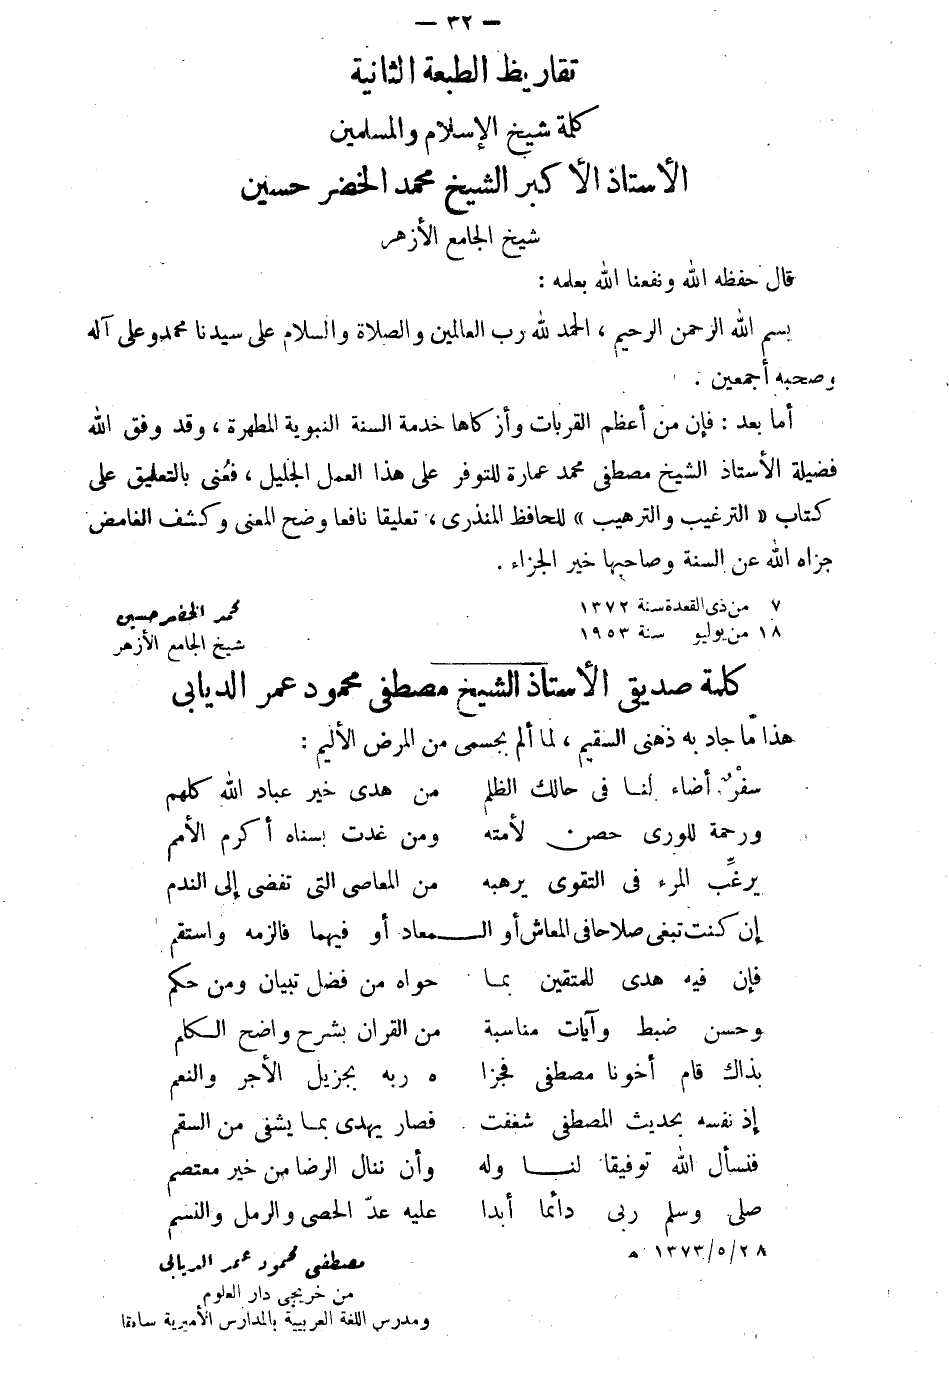 — ٣٢ —
تقاريظ الطبعة الثانية
كلمة شيخ الإسلام والمسلمين
الأستاذ الأكبر الشيخ محمد الخضر حسين
شيخ الجامع الأزهر
قال حفظه الله ونفعنا الله بعلمه :
بسم الله الرحمن الرحيم ، الحمد لله رب العالمين والصلاة والسلام على سيدنا محمد وعلى آله
وصحبه أجمعين .
أما بعد : فإن من أعظم القربات وأزكاها خدمة السنة النبوية المطهرة ، وقد وفق الله
فضيلة الأستاذ الشيخ مصطفى محمد عمارة للتوفر على هذا العمل الجليل ، فعُنى بالتعليق على
كتاب « الترغيب والترهيب » للحافظ المنذرى ، تعليقا نافعا وضح المعنى وكشف الغامض
جزاه الله عن السنة وصاحبها خير الجزاء .
٧ من ذى القعدة سنة ١٣٧٢ محمد الخضر حسين
١٨ من يوليو سنة ١٩٥٣ شيخ الجامع الأزهر
كلمة صديقى الأستاذ الشيخ مصطفى محمود عمر الديابى
هذا مّا جاد به ذهنى السقيم ، لما ألم بجسمى من المرض الأليم :
سفْرٌ أضاء لنا فى حالك الظلم من هدى خير عباد الله كلهم
ورحمة للورى حصن لأمته ومن غدت بسناه أكرم الأمم
يرغِّب المرء فى التقوى يرهبه من المعاصى التى تفضى إلى الندم
إن كنت تبغى صلاحا فى المعاش أو الـــمعاد أو فيهما فالزمه واستقم
فإن فيه هدى للمتقين بما حواه من فضل تبيان ومن حكم
وحسن ضبط وآيات مناسبة من القران بشرح واضح الكلم
بذاك قام أخونا مصطفى فجزا ه ربه بجزيل الأجر والنعم
إذ نفسه بحديث المصطفى شغفت فصار يهدى بما يشفى من السقم
فنسأل الله توفيقا لنا وله وأن ننال الرضا من خير معتصم
صلى وسلم ربى دائما أبدا عليه عدّ الحصى والرمل والنسم
٢٨/٥/١٣٧٣ ه مصطفى محمود عمر الديابى
من خريجى دار العلوم
ومدرس اللغة العربية بالمدارس الأميرية سابقا